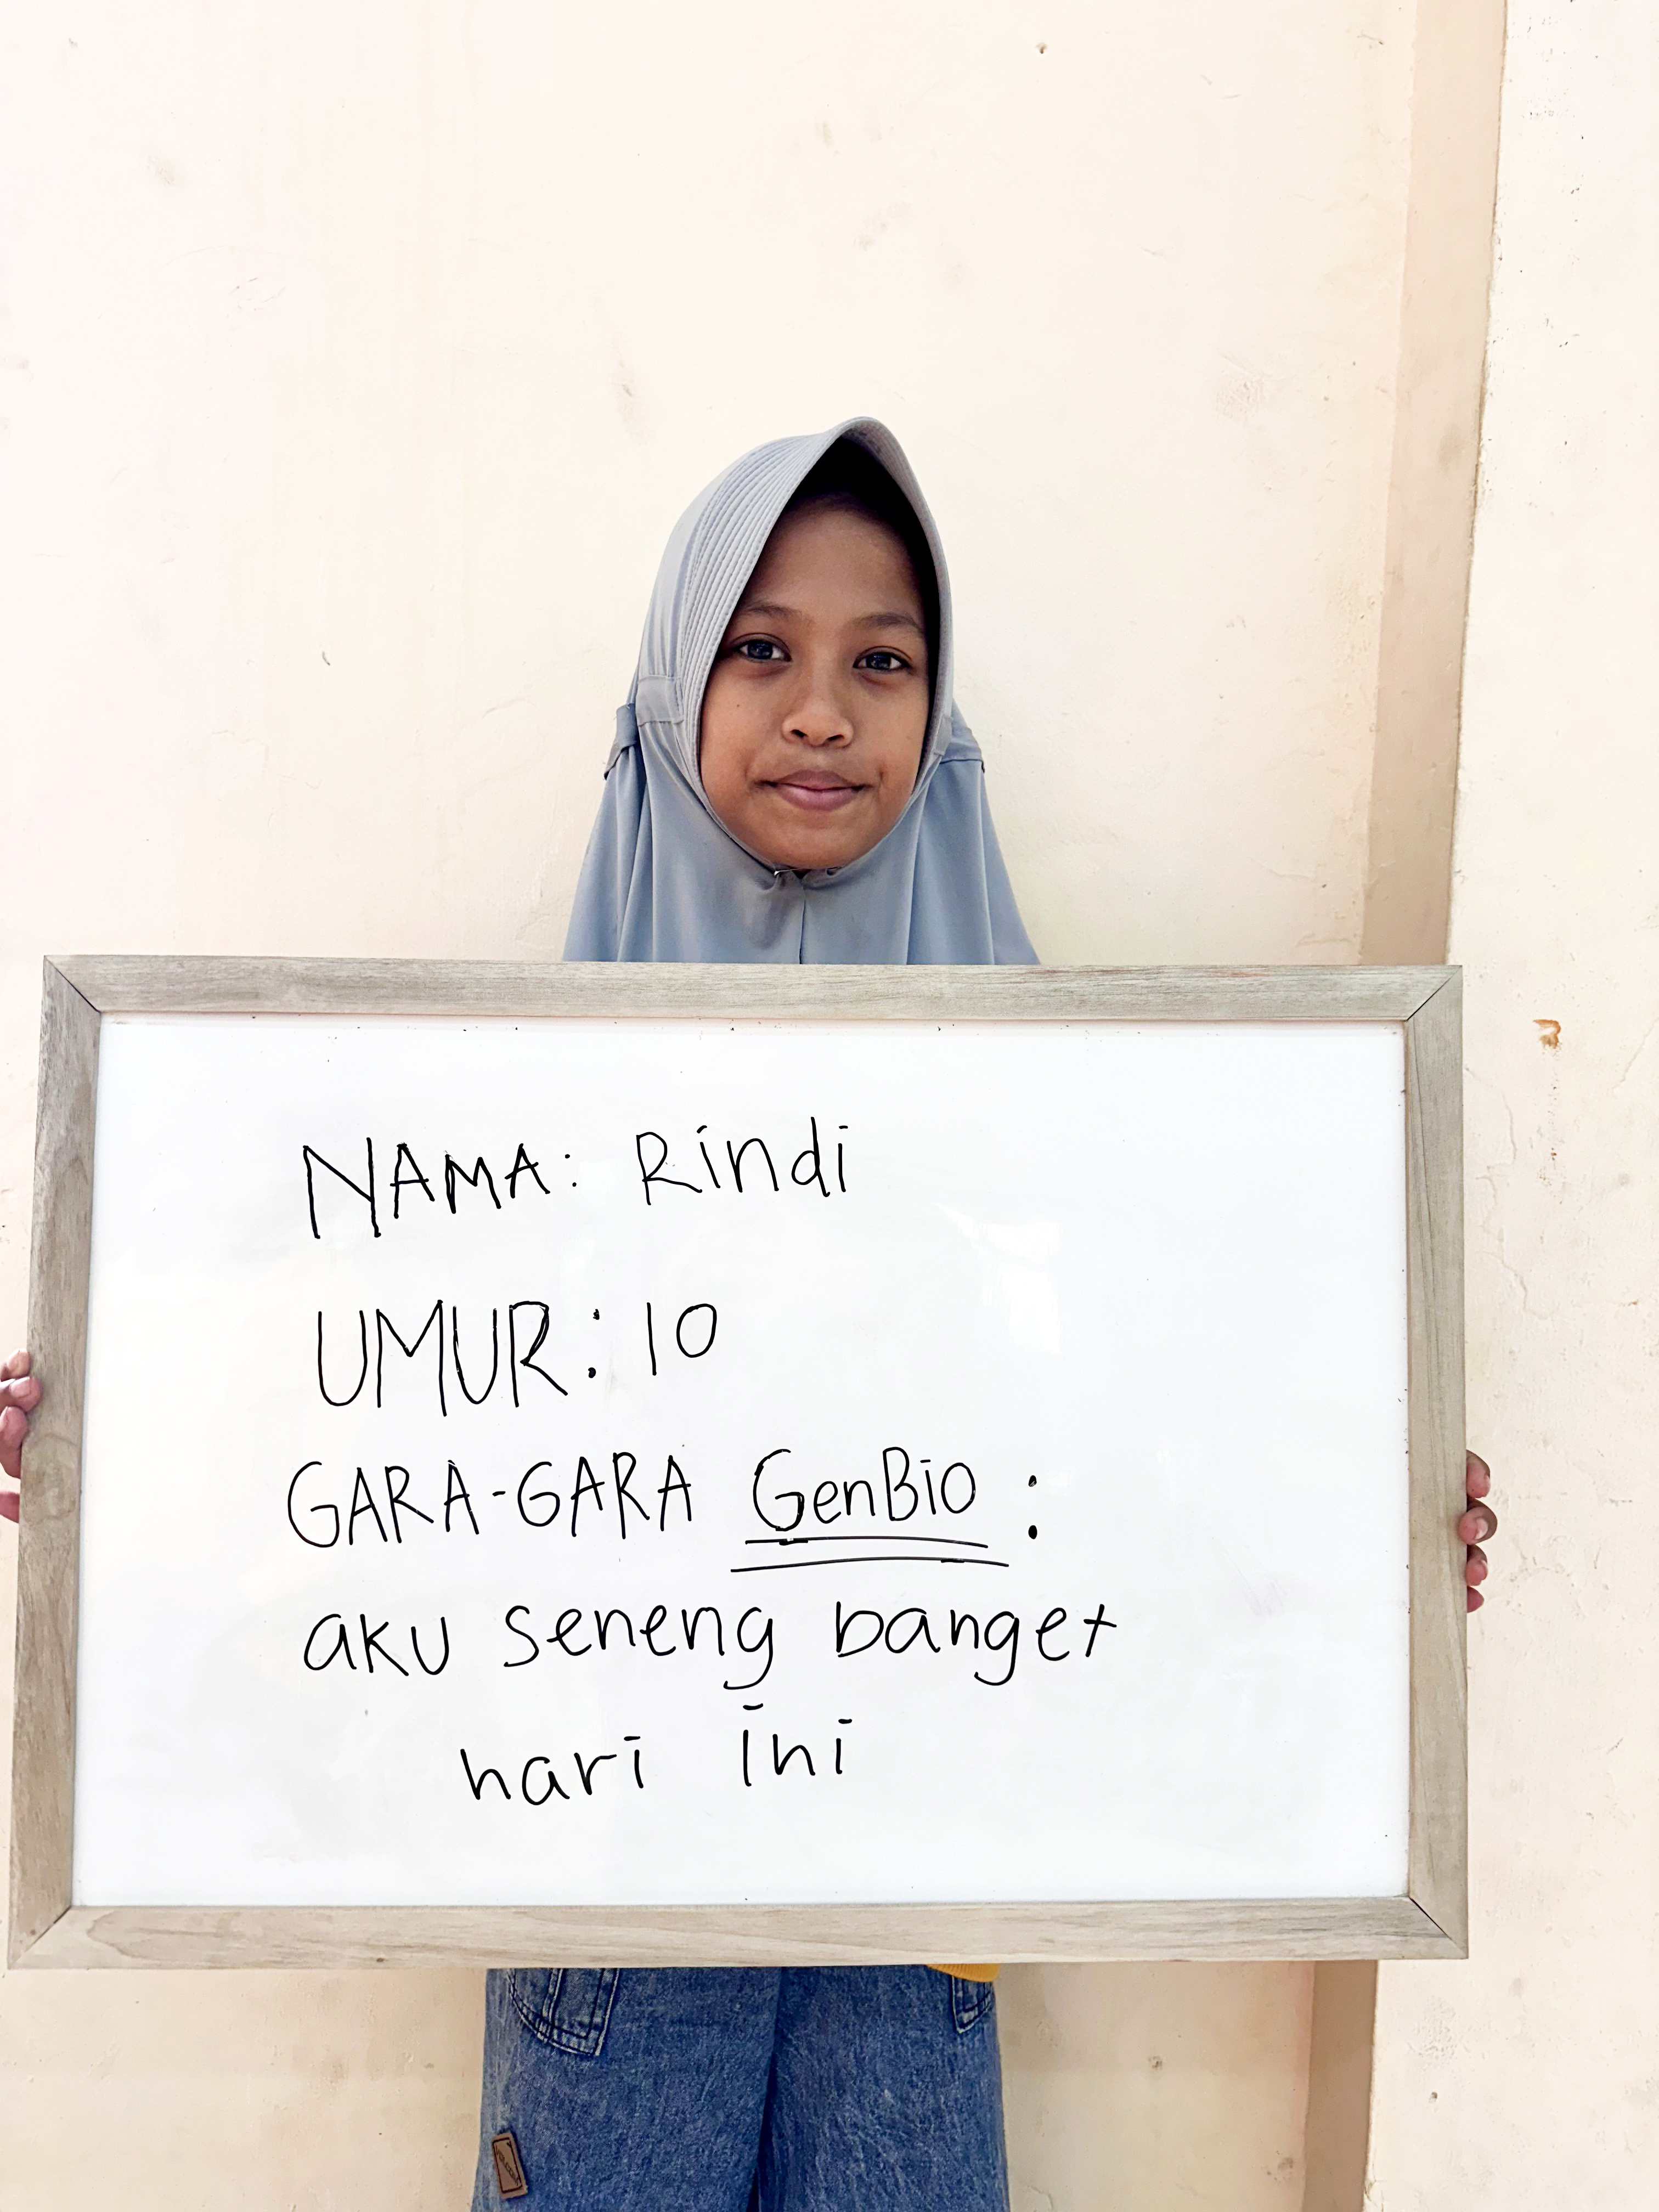 NAMA: Rindi
UMUR: 10
GARA-GARA GenBio :
aku seneng banget
hari ini